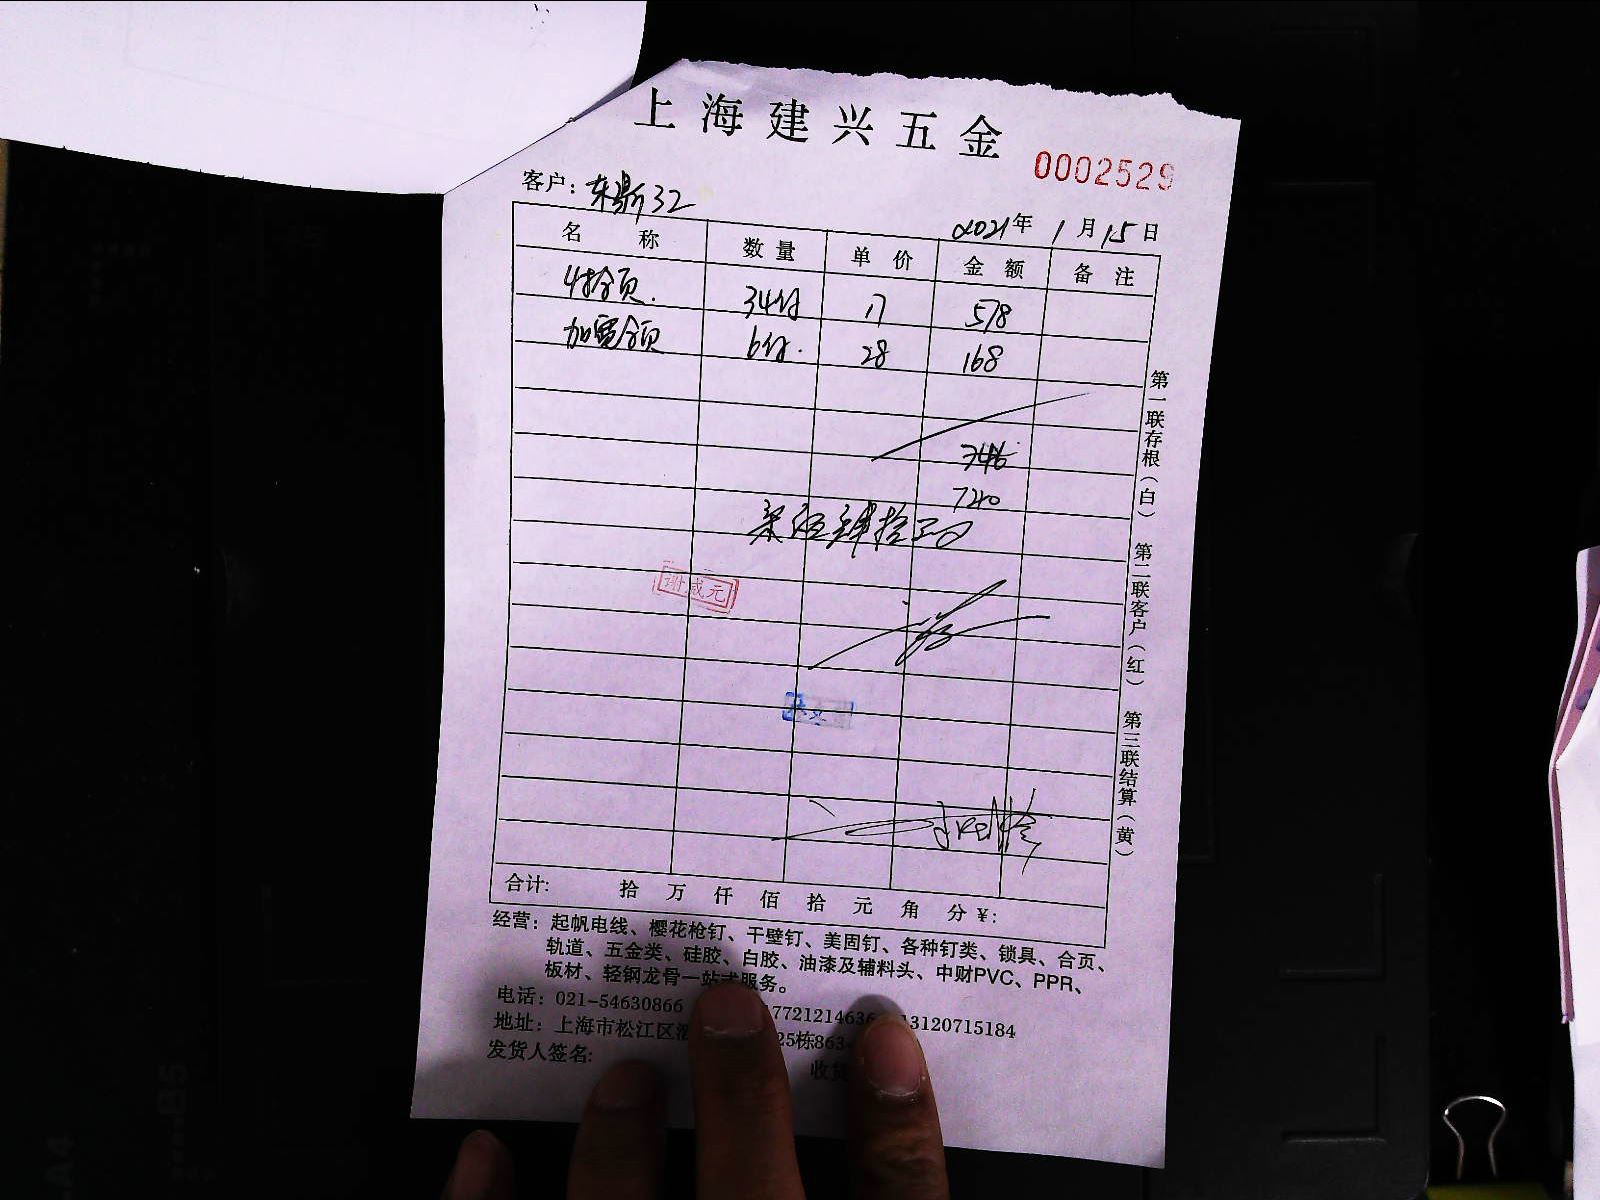 上海建兴五金
0002529
客户：东鼎32
2021年1月15日
名称 数量 单价 金额 备注
34付 17 578
6付. 28 168
746
740
柒佰肆拾元
谢成元
第一联存根（白） 第二联客户（红） 第三联结算（黄）
合计: 拾 万 仟 佰 拾 元 角 分 ¥:
经营：起帆电线、樱花枪钉、干壁钉、美固钉、各种钉类、锁具、合页、
轨道、五金类、硅胶、白胶、油漆及辅料头、中财PVC、PPR、
板材、轻钢龙骨一站式服务。
电话：021-54630866 13120715184
地址：上海市松江区
发货人签名:
B5
A4